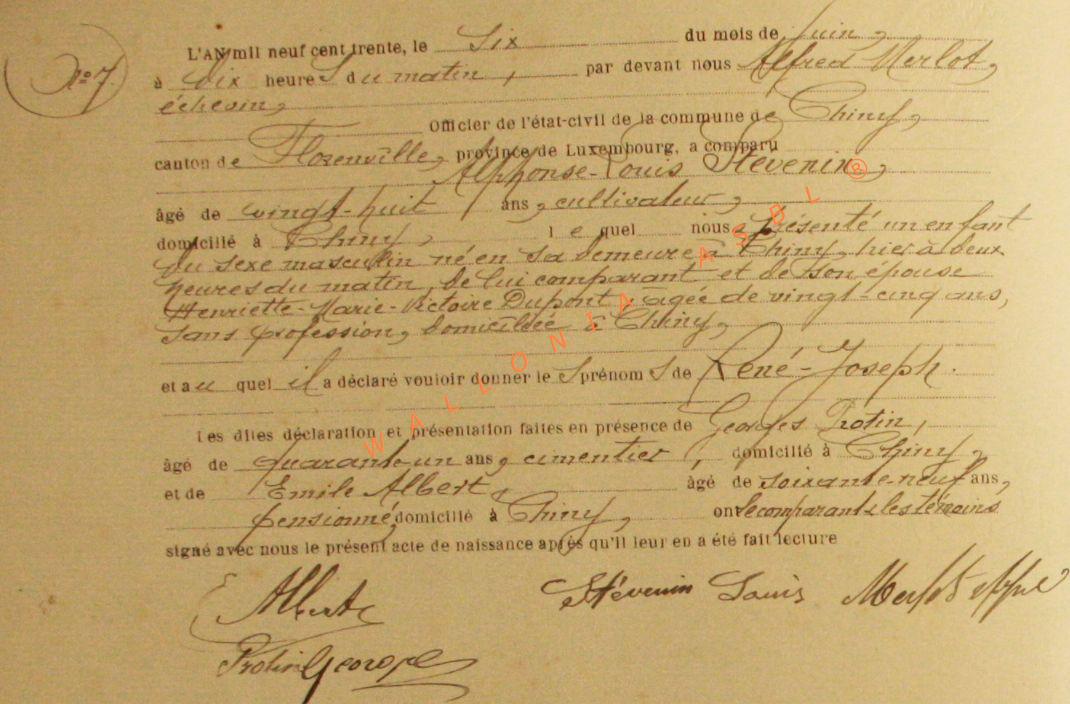 N° 7.
L'AN mil neuf cent trente, le Six du mois de juin,
à dix heures du matin, par devant nous Alfred Merlot,
échevin,
Officier de l'état-civil de la commune de Chiny,
canton de Florenville, province de Luxembourg, a comparu
Alphonse-Louis Stévenin,
âgé de vingt-huit ans, cultivateur,
domicilié à Chiny, lequel nous a présenté un enfant
du sexe masculin né en sa demeure à Chiny, hier à deux
heures du matin, de lui comparant et de son épouse
Henriette-Marie-Victoire Dupont, âgée de vingt-cinq ans,
sans profession, domiciliée à Chiny,
et auquel il a déclaré vouloir donner les prénoms de René-Joseph.
Les dites déclaration et présentation faites en présence de Georges Protin,
âgé de quarante-un ans, cimentier, domicilié à Chiny,
et de Emile Albert, âgé de soixante-neuf ans,
pensionné, domicilié à Chiny, ont le comparant & les témoins
signé avec nous le présent acte de naissance après qu'il leur en a été fait lecture
E Albert Stévenin Louis Merlot Alfred
Protin George
WALLONIA ASBL ®